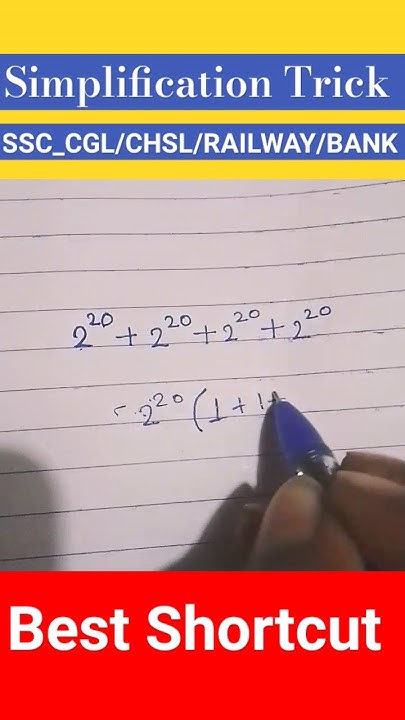 Simplification Trick
SSC_CGL/CHSL/RAILWAY/BANK
2²⁰ + 2²⁰ + 2²⁰ + 2²⁰
= 2²⁰ (1 + 1 +
Best Shortcut